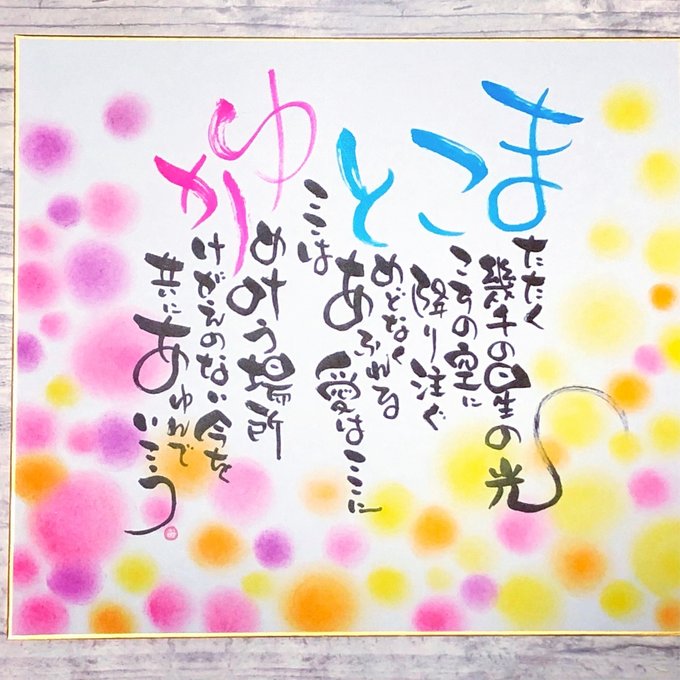 またたく
幾千の星の光
こころの空に
降り注ぐ
とめどなく
あふれる
愛はここに
ここは
ゆめ叶う場所
かけがえのない今を
共にあゆんで
いこう